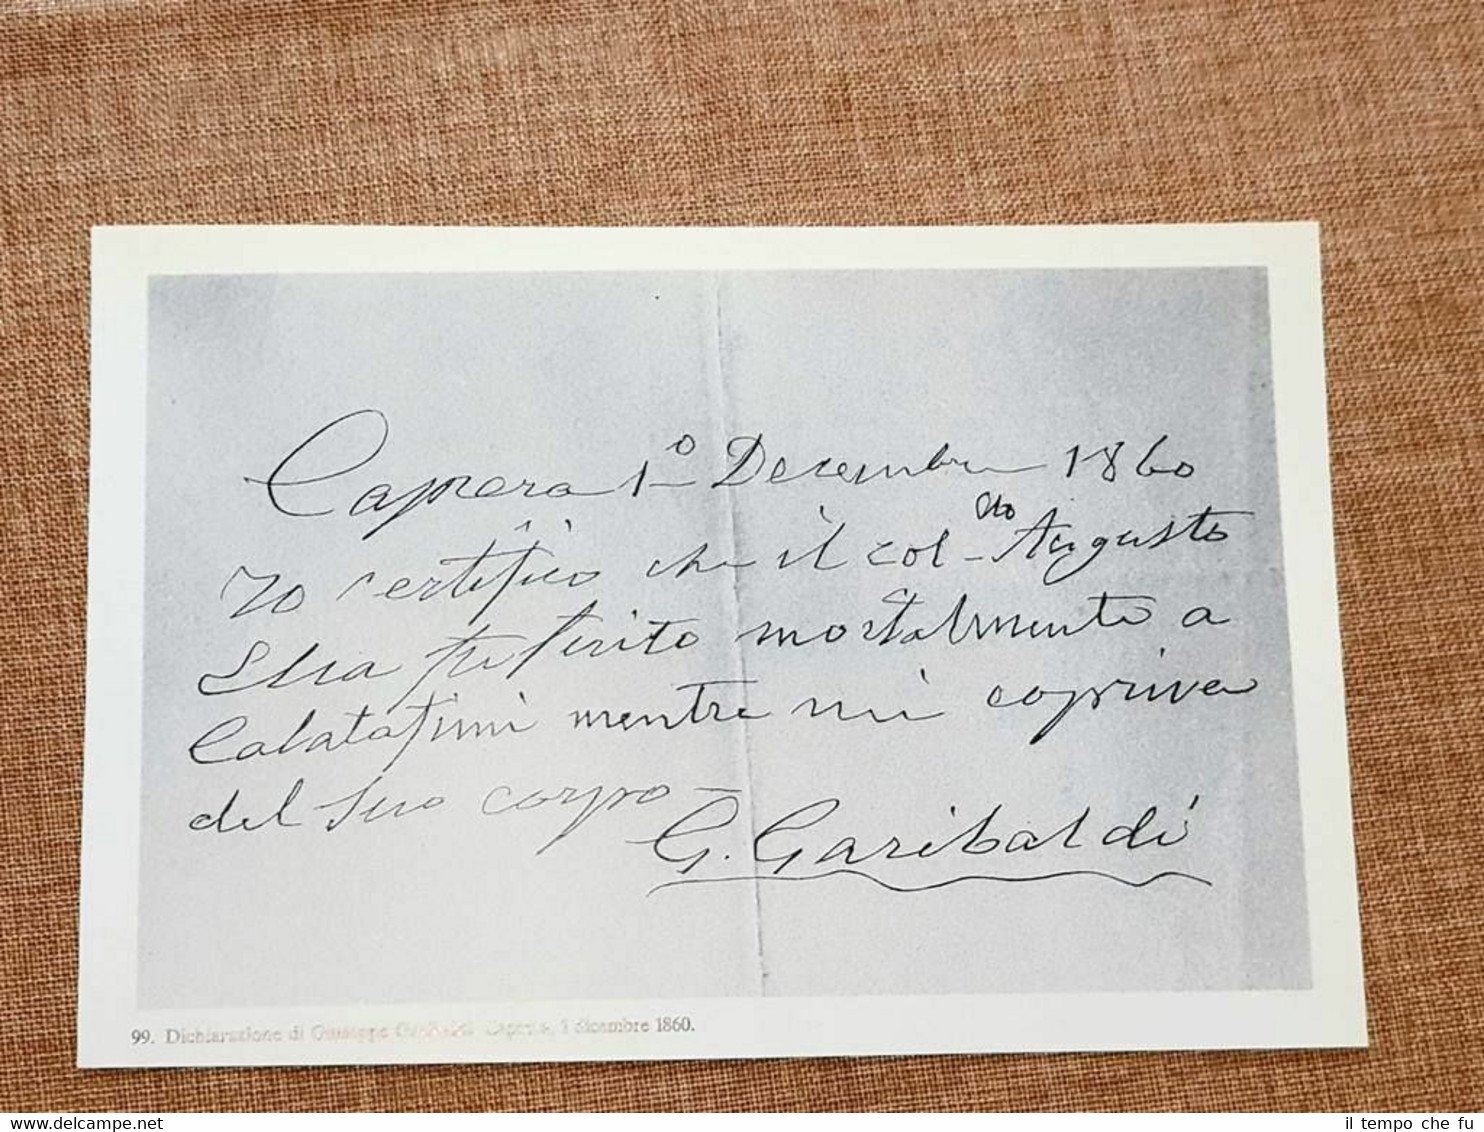 Caprera 1º Decembre 1860
Io certifico che il col-llo Augusto
Elia fu ferito mortalmente a
Calatafimi mentre mi copriva
del suo corpo —
G. Garibaldi
99. Dichiarazione di Giuseppe Garibaldi Caprera, 1 dicembre 1860.
il tempo che fu